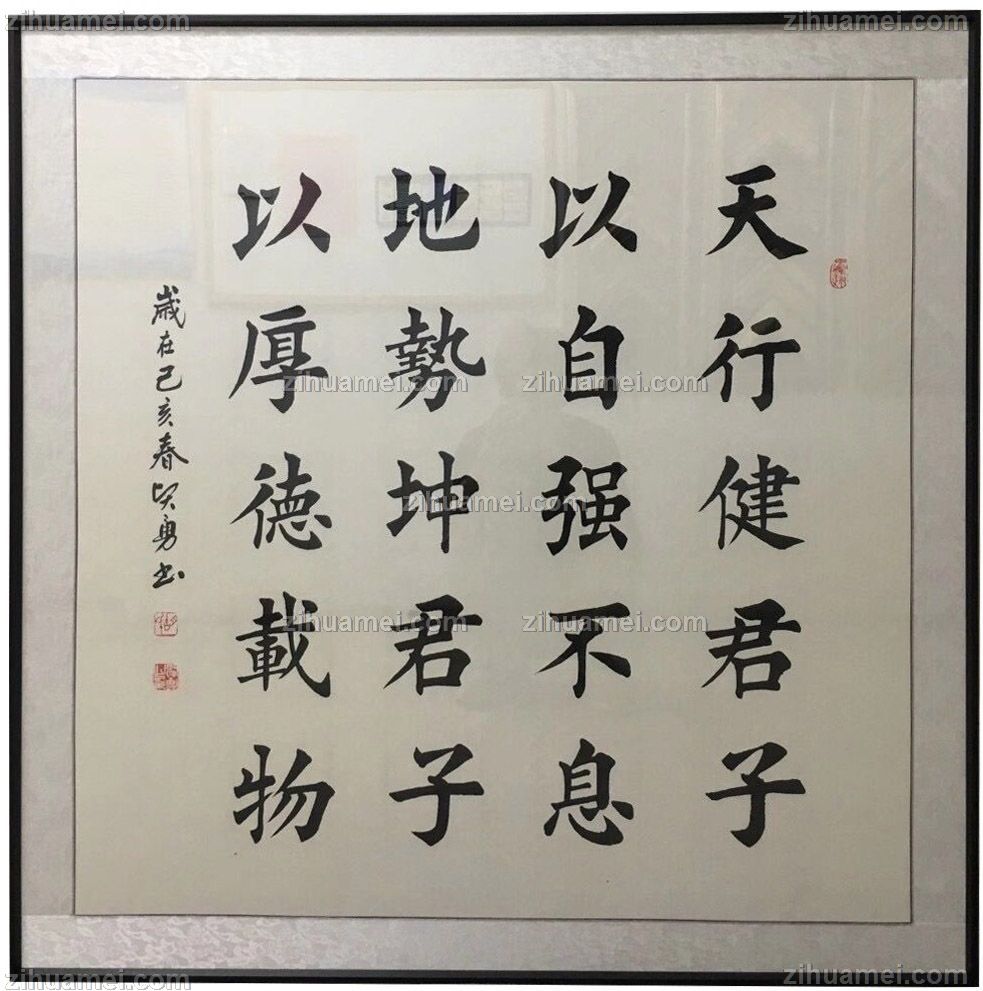 天行健君子
以自强不息
地勢坤君子
以厚德載物
歲在己亥春贤勇书
zihuamei.com
zihuamei.com
zihuamei.com
zihuamei.com
zihuamei.com
zihuamei.com
zihuamei.com
zihuamei.com
zihuamei.com
zihuamei.com